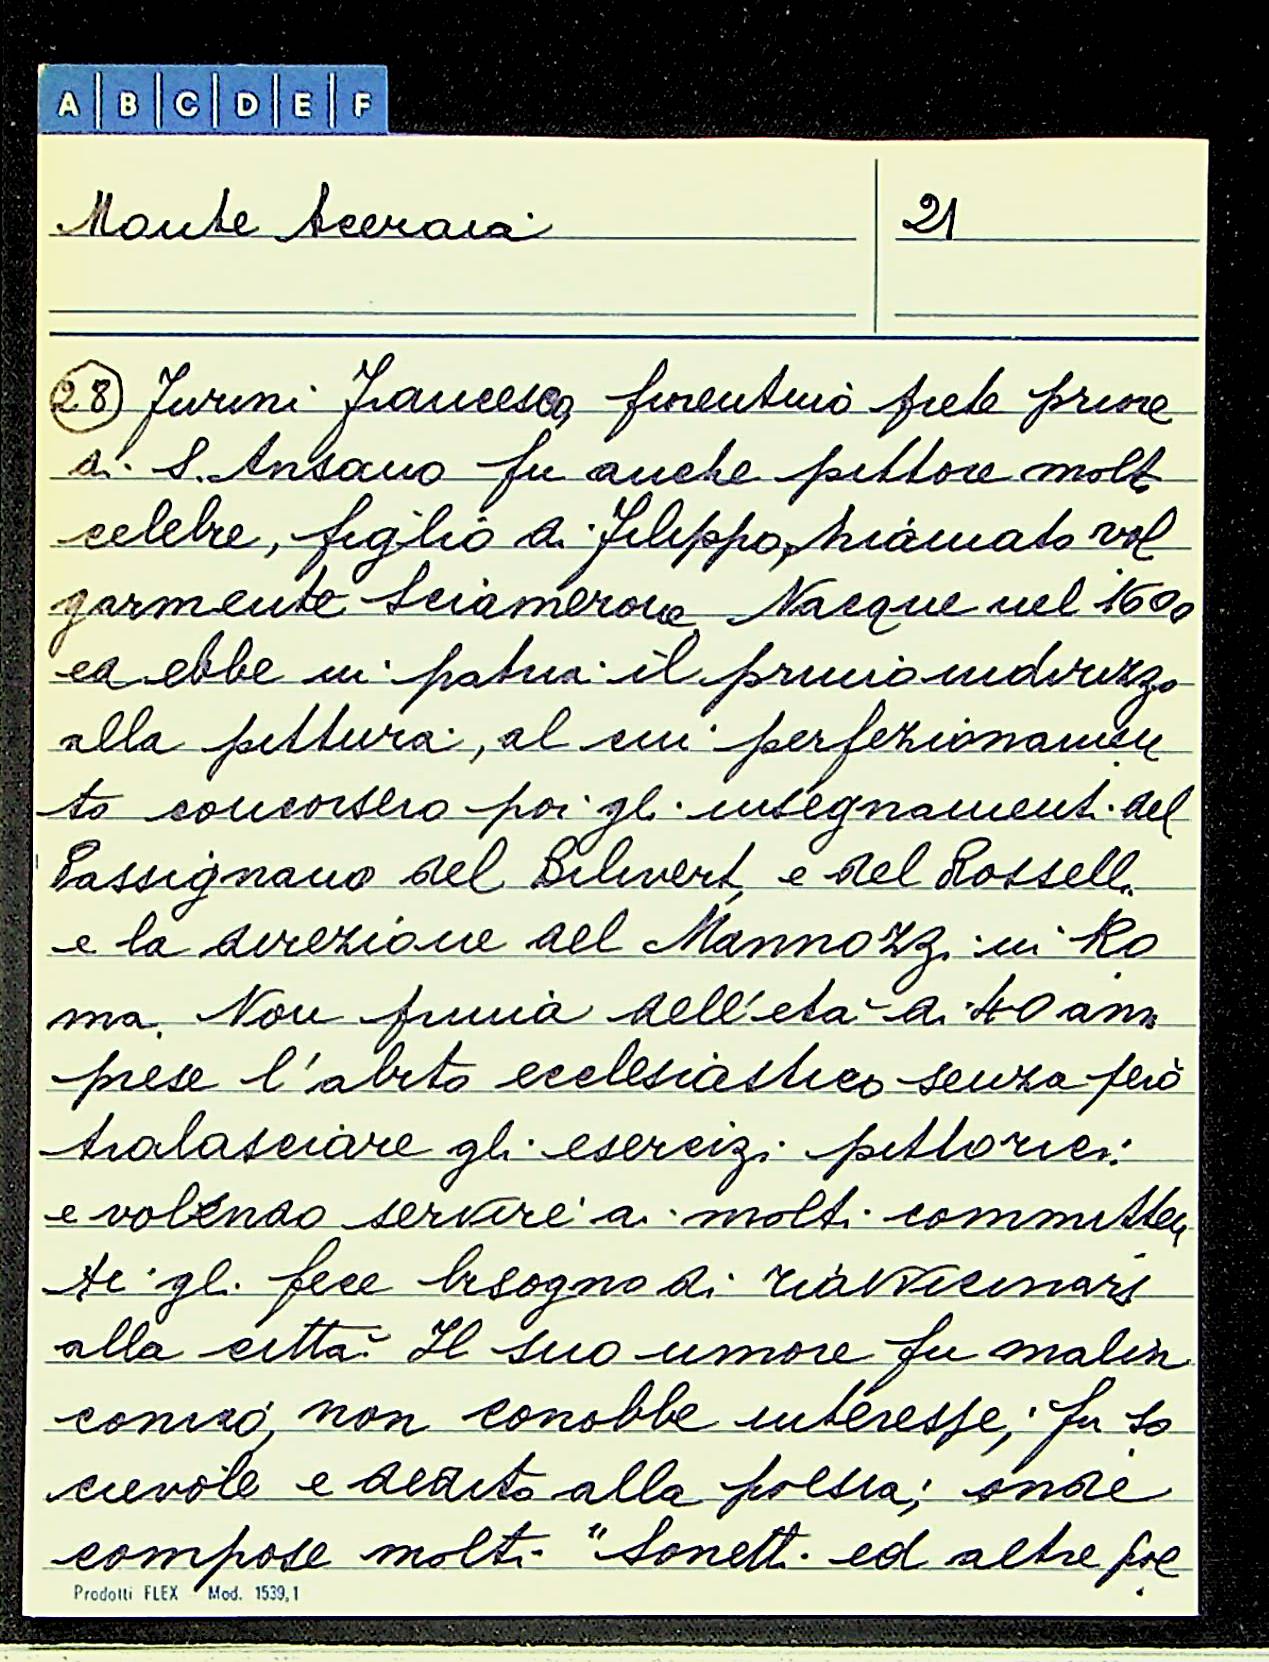 A B C D E F
Monte Aceraia
21
28 Furini Francesco, fiorentino prete priore
di S. Ansano fu anche pittore molto
celebre, figlio di Filippo, chiamato vol
garmente Sciamerone. Nacque nel 1600
ed ebbe in patria il primo indirizzo
alla pittura, al cui perfezionamen
to concorsero poi gli insegnamenti del
Passignano del Bilivert, e del Rosselli
e la direzione del Mannozzi in Ro
ma. Non prima dell'età di 40 anni
prese l'abito ecclesiastico senza però
tralasciare gli esercizi pittorici:
e volendo servire ai molti committen
ti gli fece bisogno di riavvicinarsi
alla città. Il suo umore fu malin
conico, non conobbe interesse, fu so
cievole e dedito alla poesia; onde
compose molti "Sonetti ed altre poe
Prodotti FLEX Mod. 1539,1